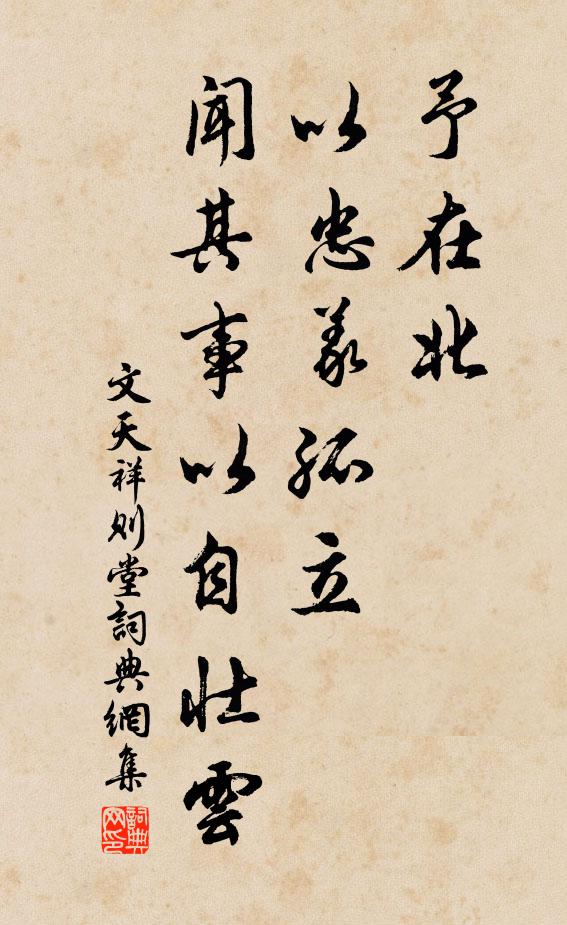 予在北
以忠義孤立
聞其事以自壯雲
文天祥則堂詞典網集
詞典网印